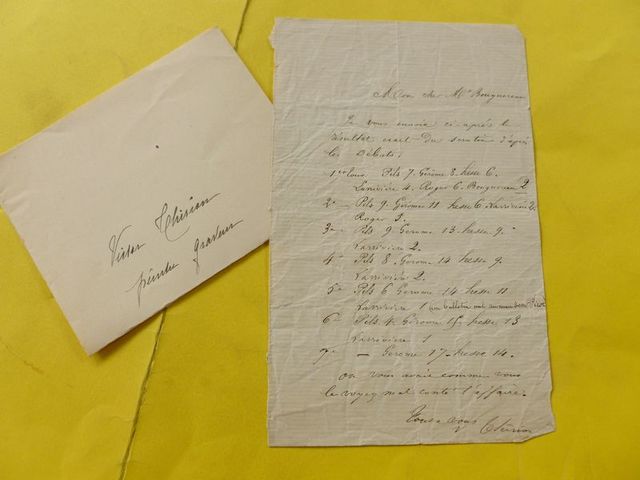 Victor Thirion
peintre graveur
Mon cher Mr Bouguereau
Je vous envoie ci-après le
résultat exact du scrutin d'après
les Débats:
1er tour Pils 7. Gérome 8. hesse 6.
Larivière 4. Roger 6. Bouguereau 2
2e - Pils 9. Gérome 11 hesse 6 Larrivière 2.
Roger 5.
3e - Pils 9 Gérome 13. hesse 9.
Larrivière 2.
4e Pils 8. Gérome 14 hesse 9.
Larrivière 2.
5e Pils 6 Gérome 14 hesse 11
Larrivière 1 (un bulletin
6e - Pils 4. Gérome 15 hesse 13
Larrivière 1
7e - Gerome 17. hesse 14.
on vous avait comme vous
le voyez mal conté l'affaire.
Tout à vous Thirion